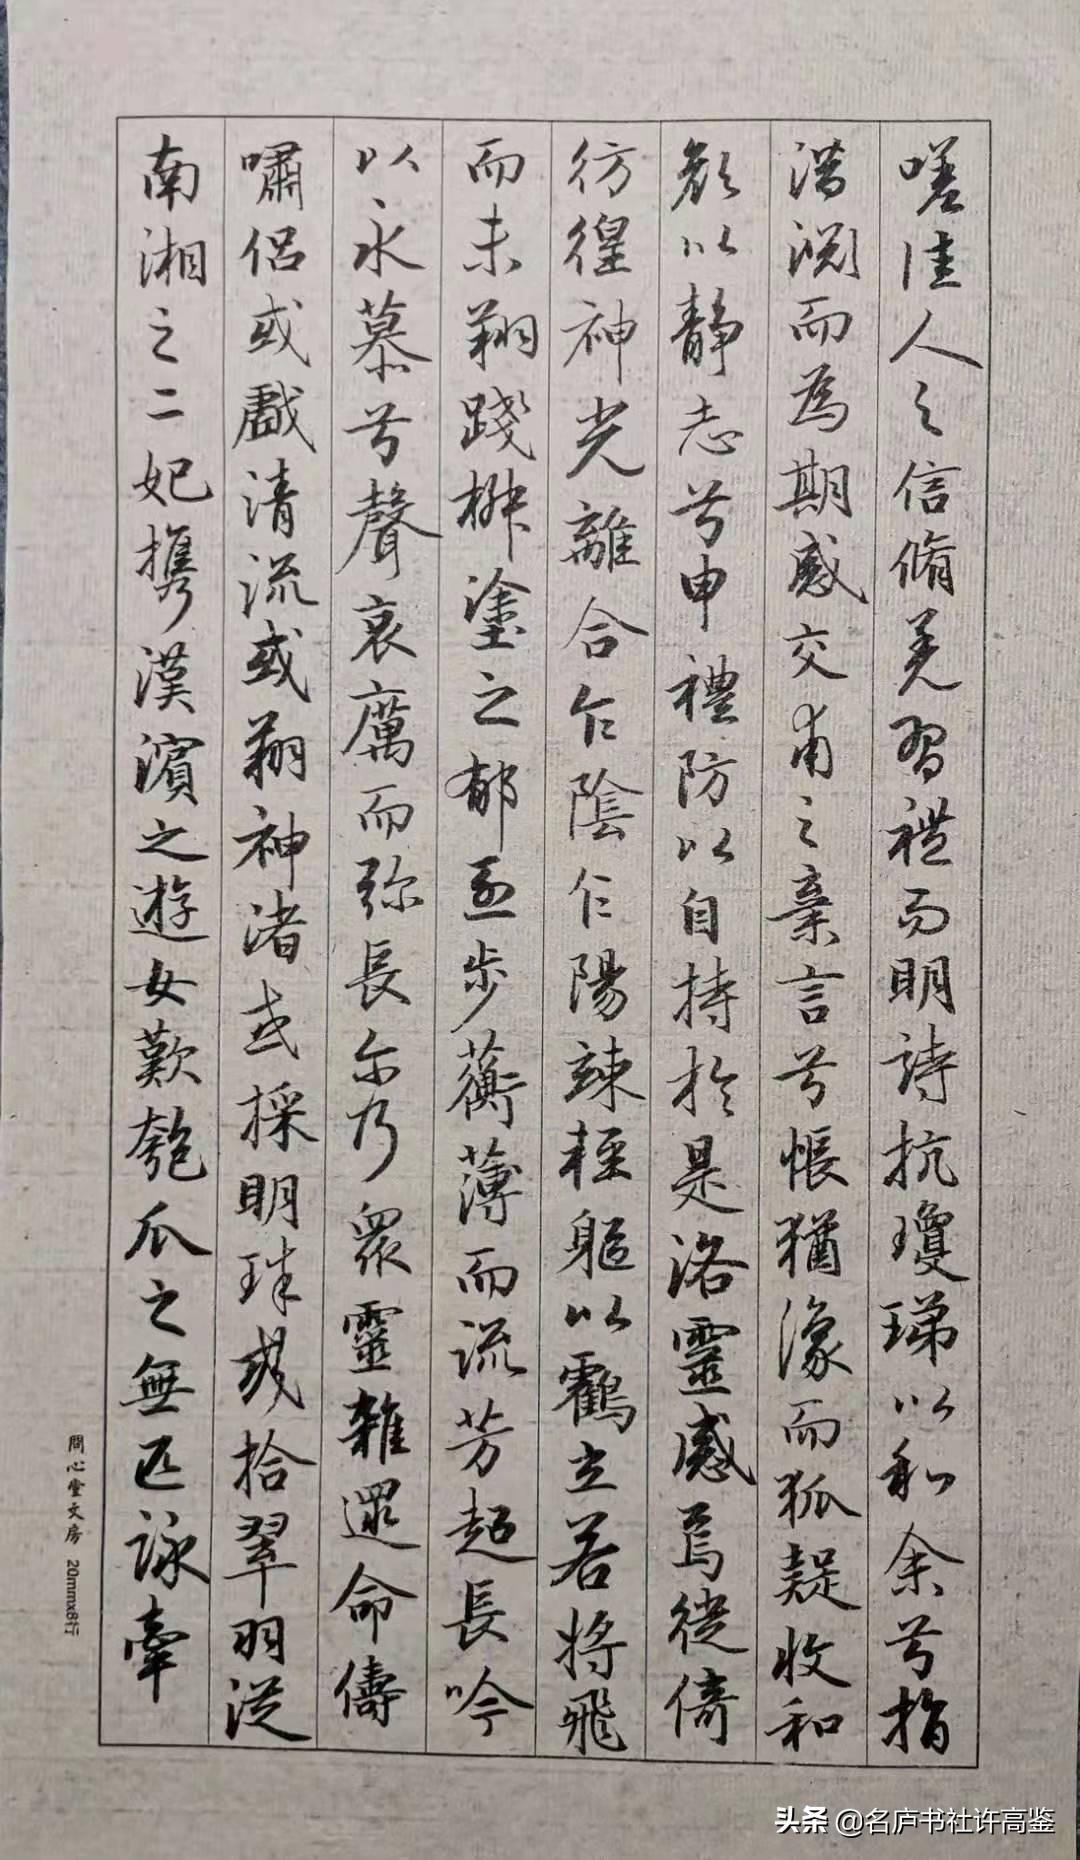 嗟佳人之信脩羌習禮而明詩抗瓊珶以和余兮指
潛淵而為期感交甫之棄言兮悵猶豫而狐疑收和
顏以静志兮申禮防以自持於是洛靈感焉徙倚
彷徨神光離合乍陰乍陽竦輕軀以鶴立若将飛
而未翔踐椒塗之郁烈步蘅薄而流芳超長吟
以永慕兮聲哀厲而弥長尔乃眾靈雜遝命儔
嘯侶或戲清流或翔神渚或採明珠或拾翠羽從
南湘之二妃攜漢濱之遊女歎匏瓜之無匹詠牽
問心堂文房 20mmx8行
头条 @名庐书社许高鉴